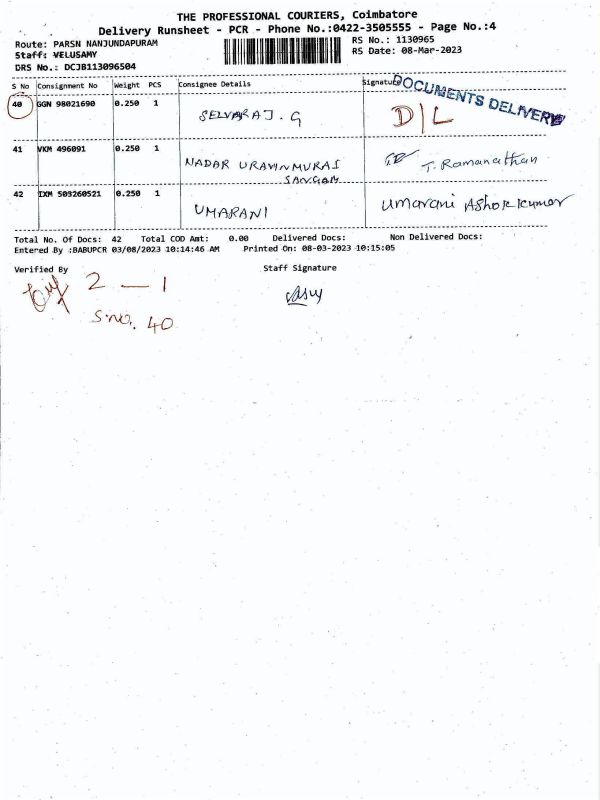 THE PROFESSIONAL COURIERS, Coimbatore
Delivery Runsheet - PCR - Phone No.:0422-3505555 - Page No.:4
Route: PARSN NANJUNDAPURAM RS No.: 1130965
Staff: VELUSAMY RS Date: 08-Mar-2023
DRS No.: DCJB113096504
S No Consignment No Weight PCS Consignee Details Signature
DOCUMENTS DELIVERED
40 GGN 98021690 0.250 1 SELVARAJ. G D/L
41 VKM 496091 0.250 1 NADAR URAVINMURAI T. Ramanathan
SANGAM
42 IXM 503260521 0.250 1 UMARANI Umarani Ashokkumar
Total No. Of Docs: 42 Total COD Amt: 0.00 Delivered Docs: Non Delivered Docs:
Entered By :BABUPCR 03/08/2023 10:14:46 AM Printed On: 08-03-2023 10:15:05
Verified By Staff Signature
2 — 1
S.no. 40